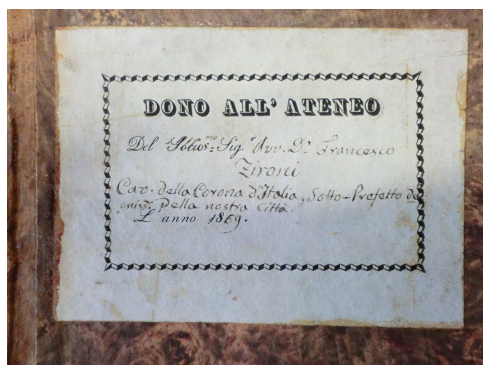 DONO ALL' ATENEO
Del Sig. Avv. D. Francesco
Zironi
Cav. della Corona d'Italia, Sotto-Prefetto
della nostra città.
L'anno 1869.